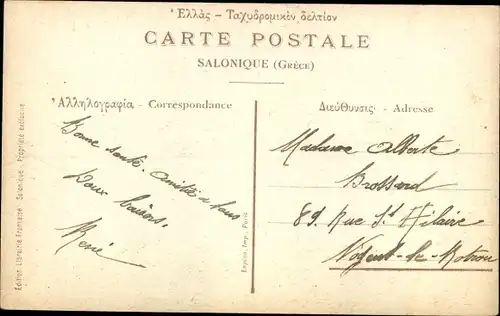 Ἑλλὰς – Ταχυδρομικὸν δελτίον
CARTE POSTALE
SALONIQUE (GRÈCE)
Ἀλληλογραφία - Correspondance
Bonne santé. amitié à tous
Doux baisers,
René
Διεύθυνσις - Adresse
Madame Alberte
Brossard
89. Rue St Hilaire
Nogent-le-Rotrou
Edition Librairie Française - Salonique - Propriété exclusive
Imp. Paris